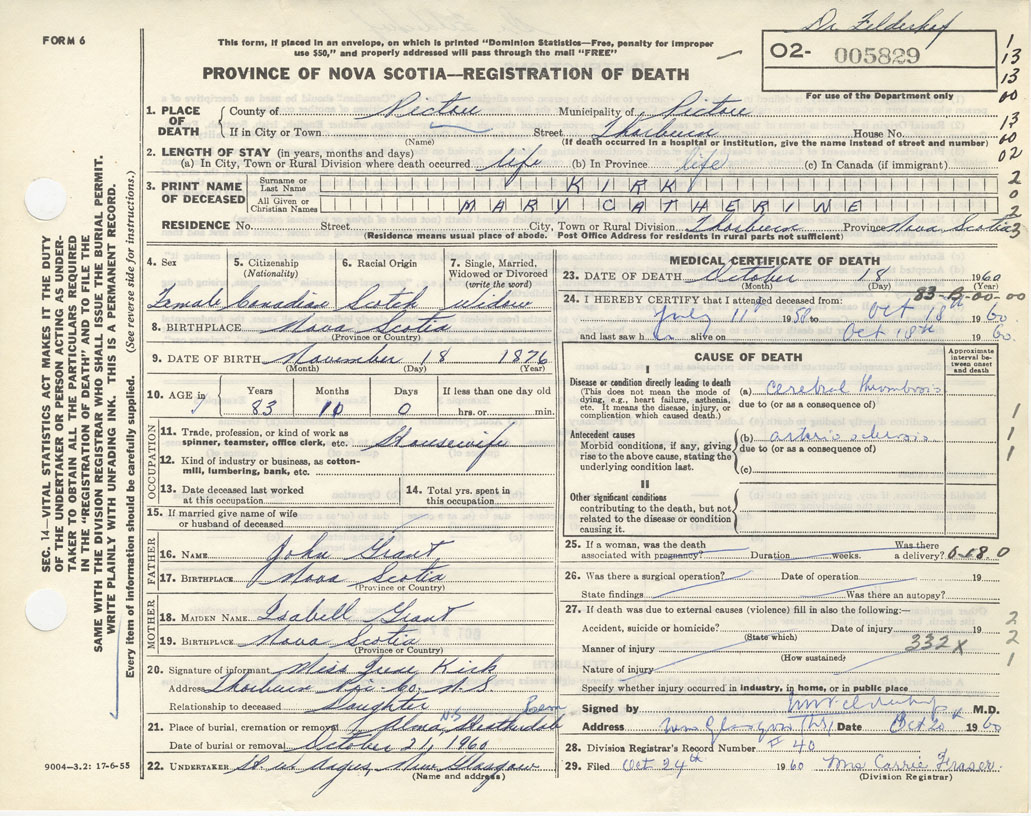 Dr. Felderhof
FORM 6
This form, if placed in an envelope, on which is printed "Dominion Statistics—Free, penalty for improper
use $50," and properly addressed will pass through the mail "FREE"
PROVINCE OF NOVA SCOTIA—REGISTRATION OF DEATH
O2- 005829
For use of the Department only
1
13
13
00
13
00
02
2
0
2
3
1. PLACE OF DEATH County of Pictou Municipality of Pictou
If in City or Town (Name) Street Thorburn House No.
(If death occurred in a hospital or institution, give the name instead of street and number)
2. LENGTH OF STAY (in years, months and days)
(a) In City, Town or Rural Division where death occurred life (b) In Province life (c) In Canada (if immigrant)
3. PRINT NAME OF DECEASED Surname or Last Name KIRK
All Given or Christian Names MARY CATHERINE
RESIDENCE No. Street City, Town or Rural Division Thorburn Province Nova Scotia
(Residence means usual place of abode. Post Office Address for residents in rural parts not sufficient)
SEC. 14—VITAL STATISTICS ACT MAKES IT THE DUTY
OF THE UNDERTAKER OR PERSON ACTING AS UNDER-
TAKER TO OBTAIN ALL THE PARTICULARS REQUIRED
IN THE "REGISTRATION OF DEATH" AND TO FILE THE
SAME WITH THE DIVISION REGISTRAR WHO SHALL ISSUE THE BURIAL PERMIT.
WRITE PLAINLY WITH UNFADING INK. THIS IS A PERMANENT RECORD.
Every item of information should be carefully supplied. (See reverse side for instructions.)
4. Sex Female
5. Citizenship (Nationality) Canadian
6. Racial Origin Scotch
7. Single, Married, Widowed or Divorced (write the word) Widow
8. BIRTHPLACE Nova Scotia
(Province or Country)
9. DATE OF BIRTH November 18 1876
(Month) (Day) (Year)
10. AGE in Years 83 Months 10 Days 0 If less than one day old hrs. or min.
OCCUPATION
11. Trade, profession, or kind of work as
spinner, teamster, office clerk, etc. Housewife
12. Kind of industry or business, as cotton-
mill, lumbering, bank, etc.
13. Date deceased last worked
at this occupation
14. Total yrs. spent in
this occupation
15. If married give name of wife
or husband of deceased
FATHER
16. NAME John Grant
17. BIRTHPLACE Nova Scotia
(Province or Country)
MOTHER
18. MAIDEN NAME Isabell Grant
19. BIRTHPLACE Nova Scotia
(Province or Country)
20. Signature of informant Miss June Kirk
Address Thorburn Pic. Co. N.S.
Relationship to deceased Daughter
21. Place of burial, cremation or removal Alma N.S
Date of burial or removal October 21, 1960
22. UNDERTAKER New Glasgow
(Name and address)
9004-3.2: 17-6-55
MEDICAL CERTIFICATE OF DEATH
23. DATE OF DEATH October 18 1960
(Month) (Day) (Year)
83-B-00-00
24. I HEREBY CERTIFY that I attended deceased from:
July 11th 1958 to Oct 18th 1960
and last saw h alive on Oct 18th 1960.
CAUSE OF DEATH
Approximate interval between onset and death
I
Disease or condition directly leading to death
(This does not mean the mode of
dying, e.g., heart failure, asthenia,
etc. It means the disease, injury, or
complication which caused death.)
(a) Cerebral thrombosis
due to (or as a consequence of)
Antecedent causes
Morbid conditions, if any, giving
rise to the above cause, stating the
underlying condition last.
(b) arterio sclerosis
due to (or as a consequence of)
(c)
II
Other significant conditions
contributing to the death, but not
related to the disease or condition
causing it.
1
1
1
25. If a woman, was the death
associated with pregnancy? Duration weeks. Was there a delivery? 0-18.0
26. Was there a surgical operation? Date of operation 19
State findings Was there an autopsy?
27. If death was due to external causes (violence) fill in also the following:—
Accident, suicide or homicide? (State which) Date of injury 19
Manner of injury (How sustained) 332X
Nature of injury
Specify whether injury occurred in industry, in home, or in public place
2
2
1
Signed by M.D.
Address New Glasgow N.S. Date Oct 20th 1960
28. Division Registrar's Record Number # 40
29. Filed Oct 24th 1960 Mrs Carrie Fraser.
(Division Registrar)